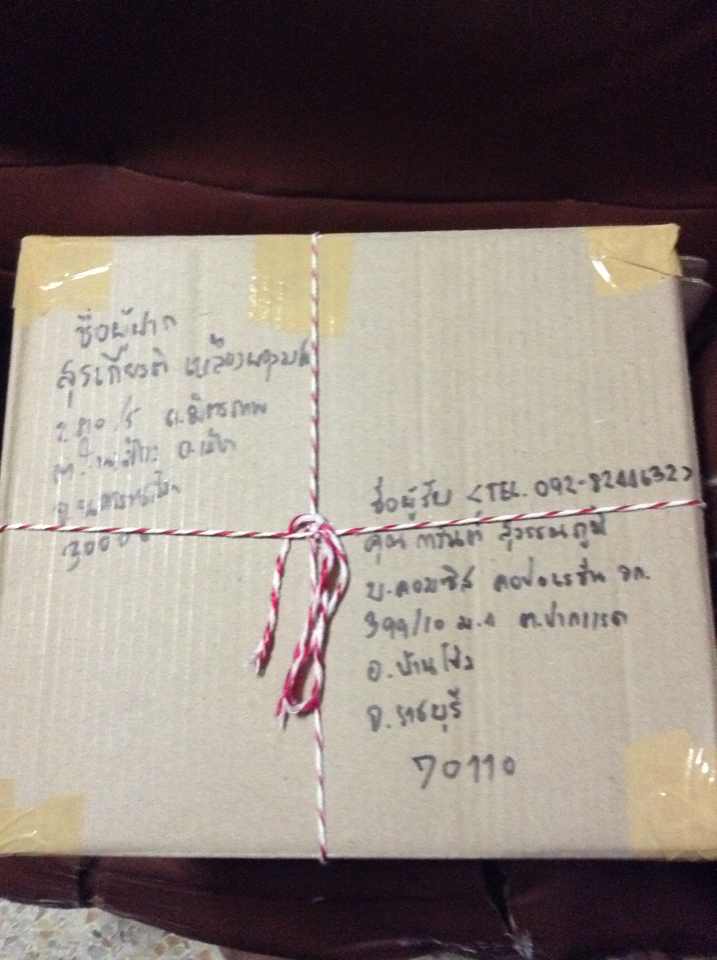 ชื่อผู้ฝาก
สุรเกียรติ
ถ.มิตรภาพ
ต.ในเมือง อ.เมือง
จ.นครราชสีมา
30000
ชื่อผู้รับ <TEL. 092-8244632>
คุณ การันต์ สุวรรณภูมิ
บ.คอมซิส คอปอเรชั่น จก.
399/10 ม.4 ต.ปากแรต
อ.บ้านโป่ง
จ.ราชบุรี
70110